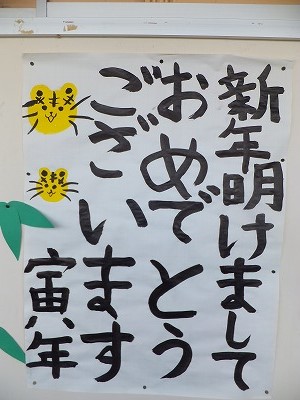 新年明けまして
おめでとう
ございます
寅年